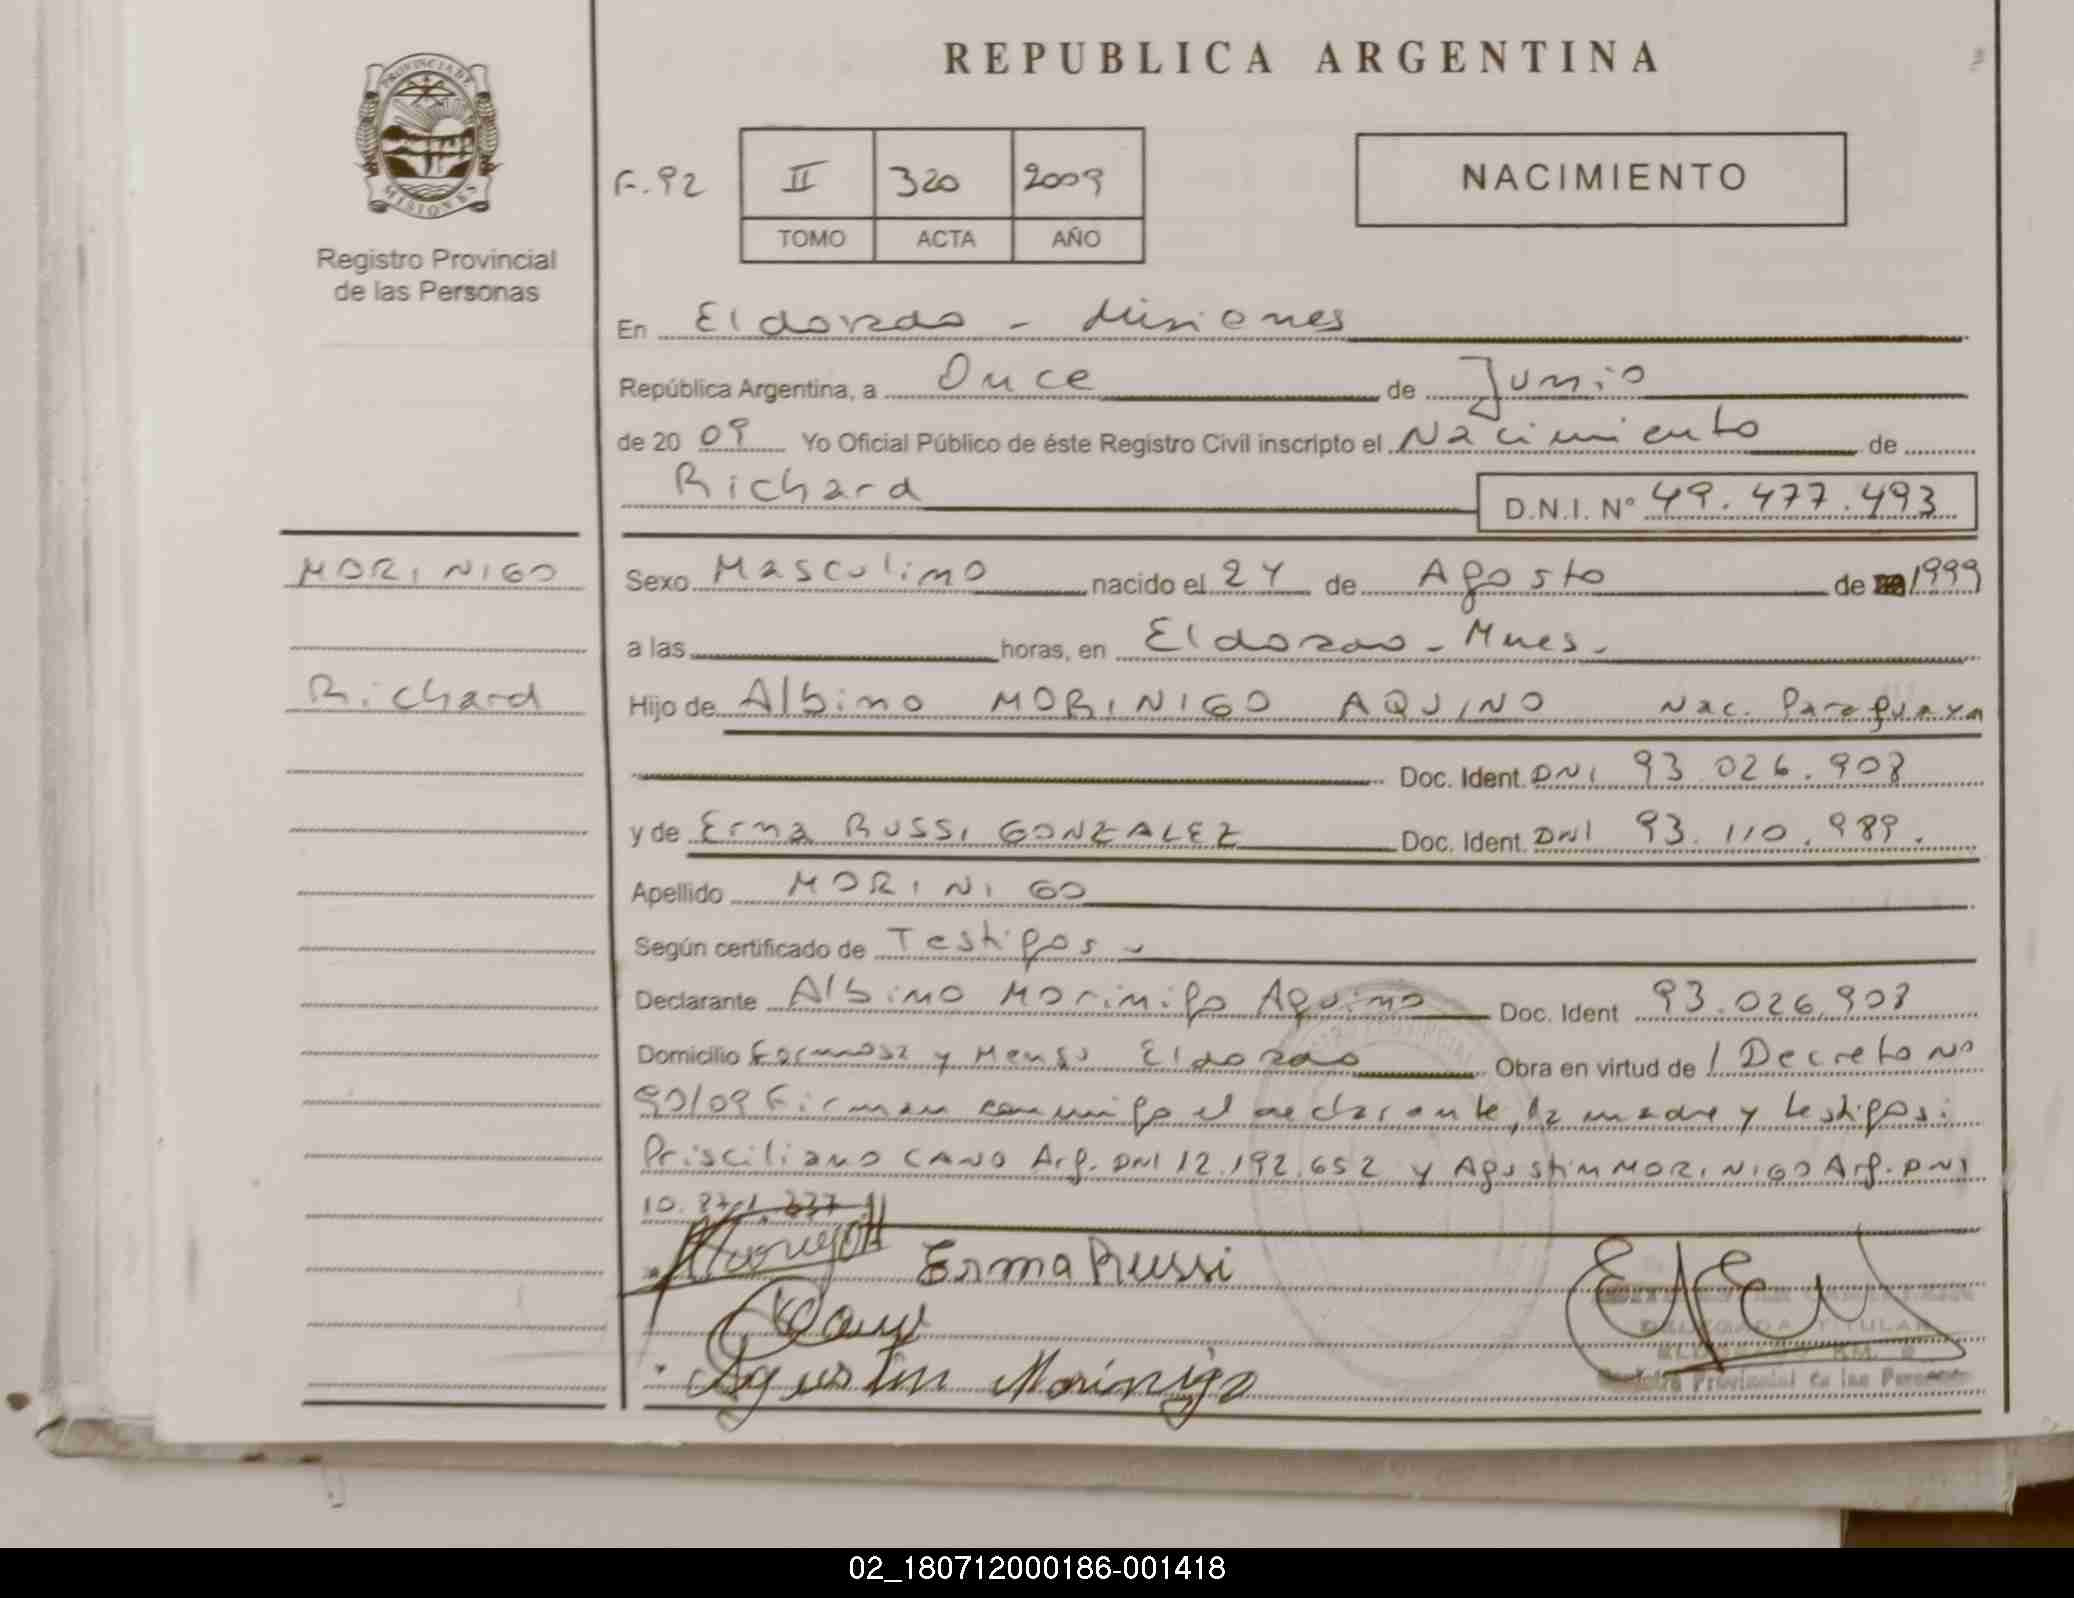 REPUBLICA ARGENTINA
PROVINCIA DE
MISIONES
Registro Provincial
de las Personas
F. 92
II 320 2009
TOMO ACTA AÑO
NACIMIENTO
En Eldorado - Misiones
República Argentina, a Once de Junio
de 20 09 Yo Oficial Público de éste Registro Civil inscripto el Nacimiento de
Richard D.N.I. N° 49.477.493
MORINIGO
Richard
Sexo Masculino nacido el 24 de Agosto de 1999
a las horas, en Eldorado - Mnes.
Hijo de Albino MORINIGO AQUINO Nac. Paraguaya
Doc. Ident. DNI 93.026.908
y de Erma RUSSI GONZALEZ Doc. Ident. DNI 93.110.989.
Apellido MORINIGO
Según certificado de Testigos -
Declarante Albino Morinigo Aquino Doc. Ident 93.026.908
Domicilio Formosa y Mensu Eldorado Obra en virtud de / Decreto Nº
90/09 Firman conmigo el declarante, la madre y testigos:
Prisciliano CANO Arg. DNI 12.192.652 y Agustin MORINIGO Arg. DNI
10.
Erma Russi
Agustin Morinigo
DELEGADA TITULAR
Registro Provincial de las Personas
02_180712000186-001418